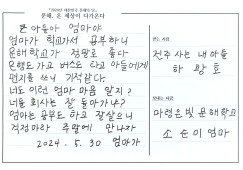 「2024년 대한민국 문해의 달」
문해, 온 세상이 다가온다
큰 아들아 엄마야
엄마가 학교가서 공부하니
문해학교가 정말로 좋다
은행도 가고 버스도 타고 아들에게
편지를 쓰니 기적같다.
너도 이런 엄마 마음 알지?
너들 회사는 잘 돌아가냐?
엄마는 공부도 하고 잘살으니
걱정마라 주말에 만나자
2024. 5. 30 엄마가
전주 사는 내 아들
하 광 호
마령은빛문해학교
소순이 엄마